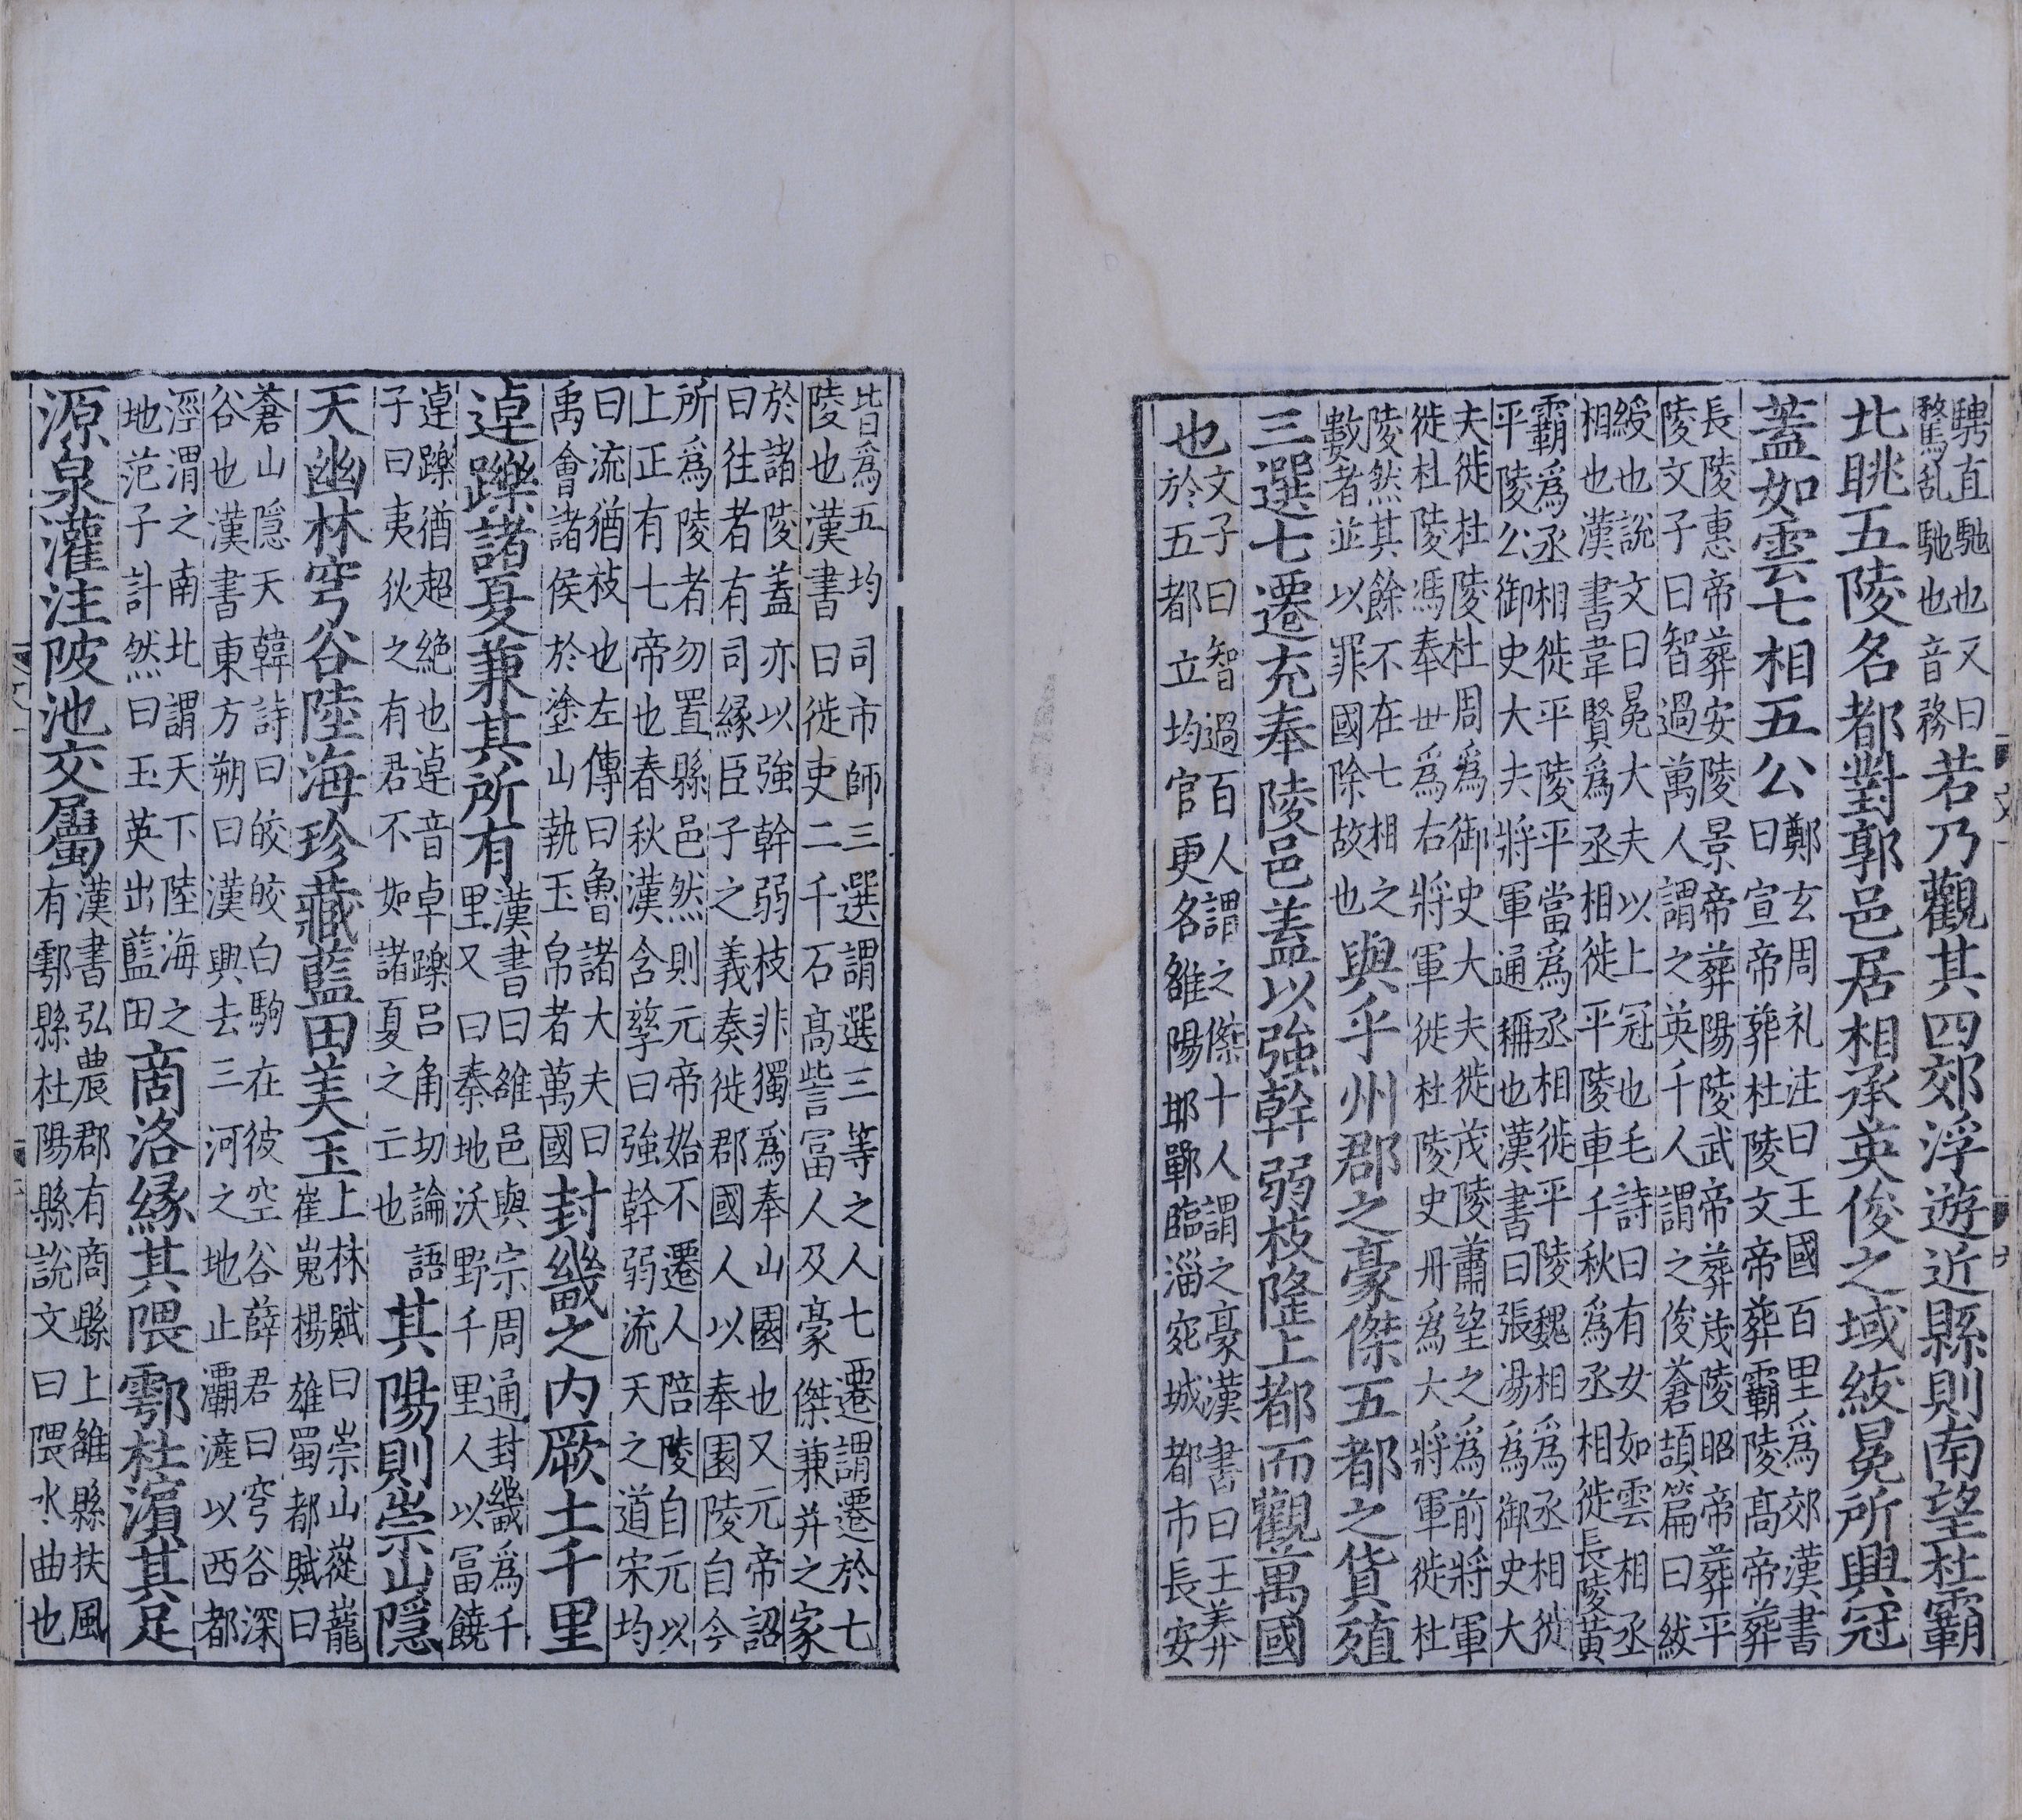 騁直馳也又曰
騖乱馳也音務
若乃觀其四郊浮遊近縣則南望杜霸
北眺五陵名都對郭邑居相承英俊之域紱冕所興冠
蓋如雲七相五公
鄭玄周礼注曰王國百里爲郊漢書
曰宣帝葬杜陵文帝葬霸陵髙帝葬
長陵惠帝葬安陵景帝葬陽陵武帝葬茂陵昭帝葬平
陵文子曰智過萬人謂之英千人謂之俊蒼頡篇曰紱
綬也說文曰冕大夫以上冠也毛詩曰有女如雲相丞
相也漢書韋賢爲丞相徙平陵車千秋爲丞相徙長陵黃
霸爲丞相徙平陵平當爲丞相徙平陵魏相爲丞相徙
平陵公御史大夫將軍通稱也漢書曰張湯爲御史大
夫徙杜陵杜周爲御史大夫徙茂陵蕭望之爲前將軍
徙杜陵馮奉世爲右將軍徙杜陵史丹爲大將軍徙杜
陵然其餘不在七相之
數者並以罪國除故也
與乎州郡之豪傑五都之貨殖
三選七遷充奉陵邑蓋以強幹弱枝隆上都而觀萬國
也
文子曰智過百人謂之傑十人謂之豪漢書曰王莽
於五都立均官更名雒陽邯鄲臨淄宛城都市長安
皆爲五均司市師三選謂選三等之人七遷謂遷於七
陵也漢書曰徙吏二千石髙訾冨人及豪傑兼并之家
於諸陵蓋亦以強幹弱枝非獨爲奉山園也又元帝詔
曰往者有司緣臣子之義奏徙郡國人以奉園陵自今
所爲陵者勿置縣邑然則元帝始不遷人陪陵自元以
上正有七帝也春秋漢含孳曰強幹弱流天之道宋均
曰流猶枝也左傳曰魯諸大夫曰
禹會諸侯於塗山執玉帛者萬國
封畿之内厥土千里
逴躒諸夏兼其所有
漢書曰雒邑與宗周通封畿爲千
里又曰秦地沃野千里人以冨饒
逴躒猶超絶也逴音卓躒呂角切論語
子曰夷狄之有君不如諸夏之亡也
其陽則崇山隱
天幽林穹谷陸海珍藏藍田美玉
上林賦曰崇山嵸巃
崔嵬楊雄蜀都賦曰
蒼山隱天韓詩曰皎皎白駒在彼空谷薛君曰穹谷深
谷也漢書東方朔曰漢興去三河之地止灞滻以西都
涇渭之南北謂天下陸海之
地范子計然曰玉英出藍田
商洛緣其隈鄠杜濱其足
源泉灌注陂池交屬
漢書弘農郡有商縣上雒縣扶風
有鄠縣杜陽縣說文曰隈水曲也